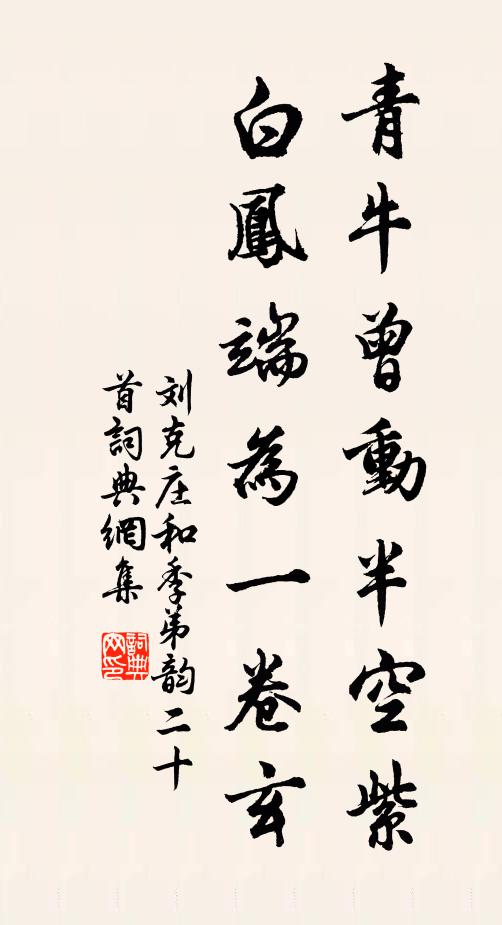 青牛曾動半空紫
白鳳端為一卷玄
刘克庄和季弟韵二十
首詞典網集
詞典网印